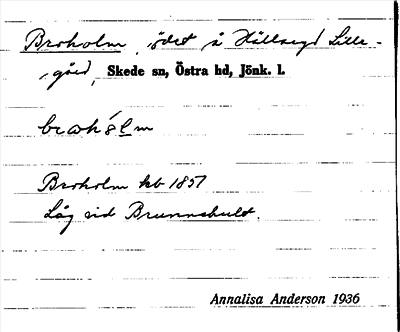 Broholm, ödet å Hällseryd Lille-
gård, Skede sn, Östra hd, Jönk. l.
Broholm kb 1857
Låg vid Brunnshult.
Annalisa Anderson 1936